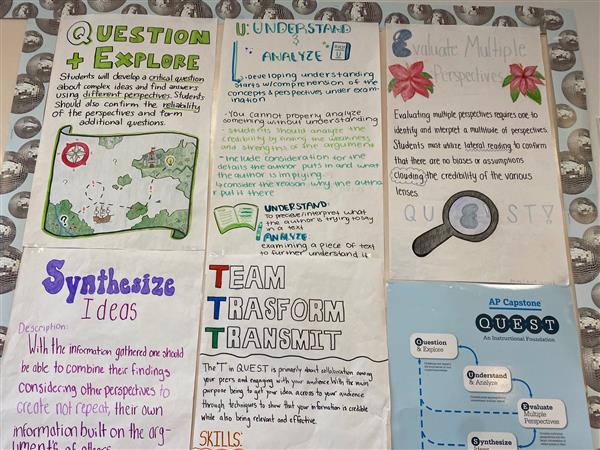 QUESTION
+ EXPLORE
Students will develop a critical question
about complex ideas and find answers
using different perspectives. Students
Should also confirm the reliability
of the perspectives and form
additional questions.
U: UNDERSTAND
&
ANALYZE
Developing understanding
starts w/comprehension of the
concepts & perspectives under exam-
ination
- You cannot properly analyze
something without understanding
- students should analyze the
credibility by finding the weakness
and strengths of the argument
- Include consideration for the
details the author puts in and what
the author is implying.
consider the reason why the author
put it there
UNDERSTAND:
To percieve/interpret what
the author is trying to say
in a text
ANALYZE:
examining a piece of text
to further understand it
Evaluate Multiple
Perspectives
Evaluating multiple perspectives requires one to
identify and interpret a multitude of perspectives.
Students must utilize lateral reading to confirm
that there are no biases or assumptions
clouding the credibility of the various
lenses.
QUEST!
Synthesize
Ideas
Description:
With the information gathered one should
be able to combine their findings
considering other perspectives to
create not repeat, their own
information built on the arg-
uments of others
TEAM
TRASFORM
TRANSMIT
The T in QUEST is primarily about collaboration among
your peers and engaging with your audience. With the main
purpose being to get your idea across to your audience
through techniques to show that your information is credible
while also being relevant and effective.
SKILLS:
AP Capstone
QUEST
An Instructional Foundation
Question
& Explore
Understand
& Analyze
Evaluate
Multiple
Perspectives
Synthesize
Ideas